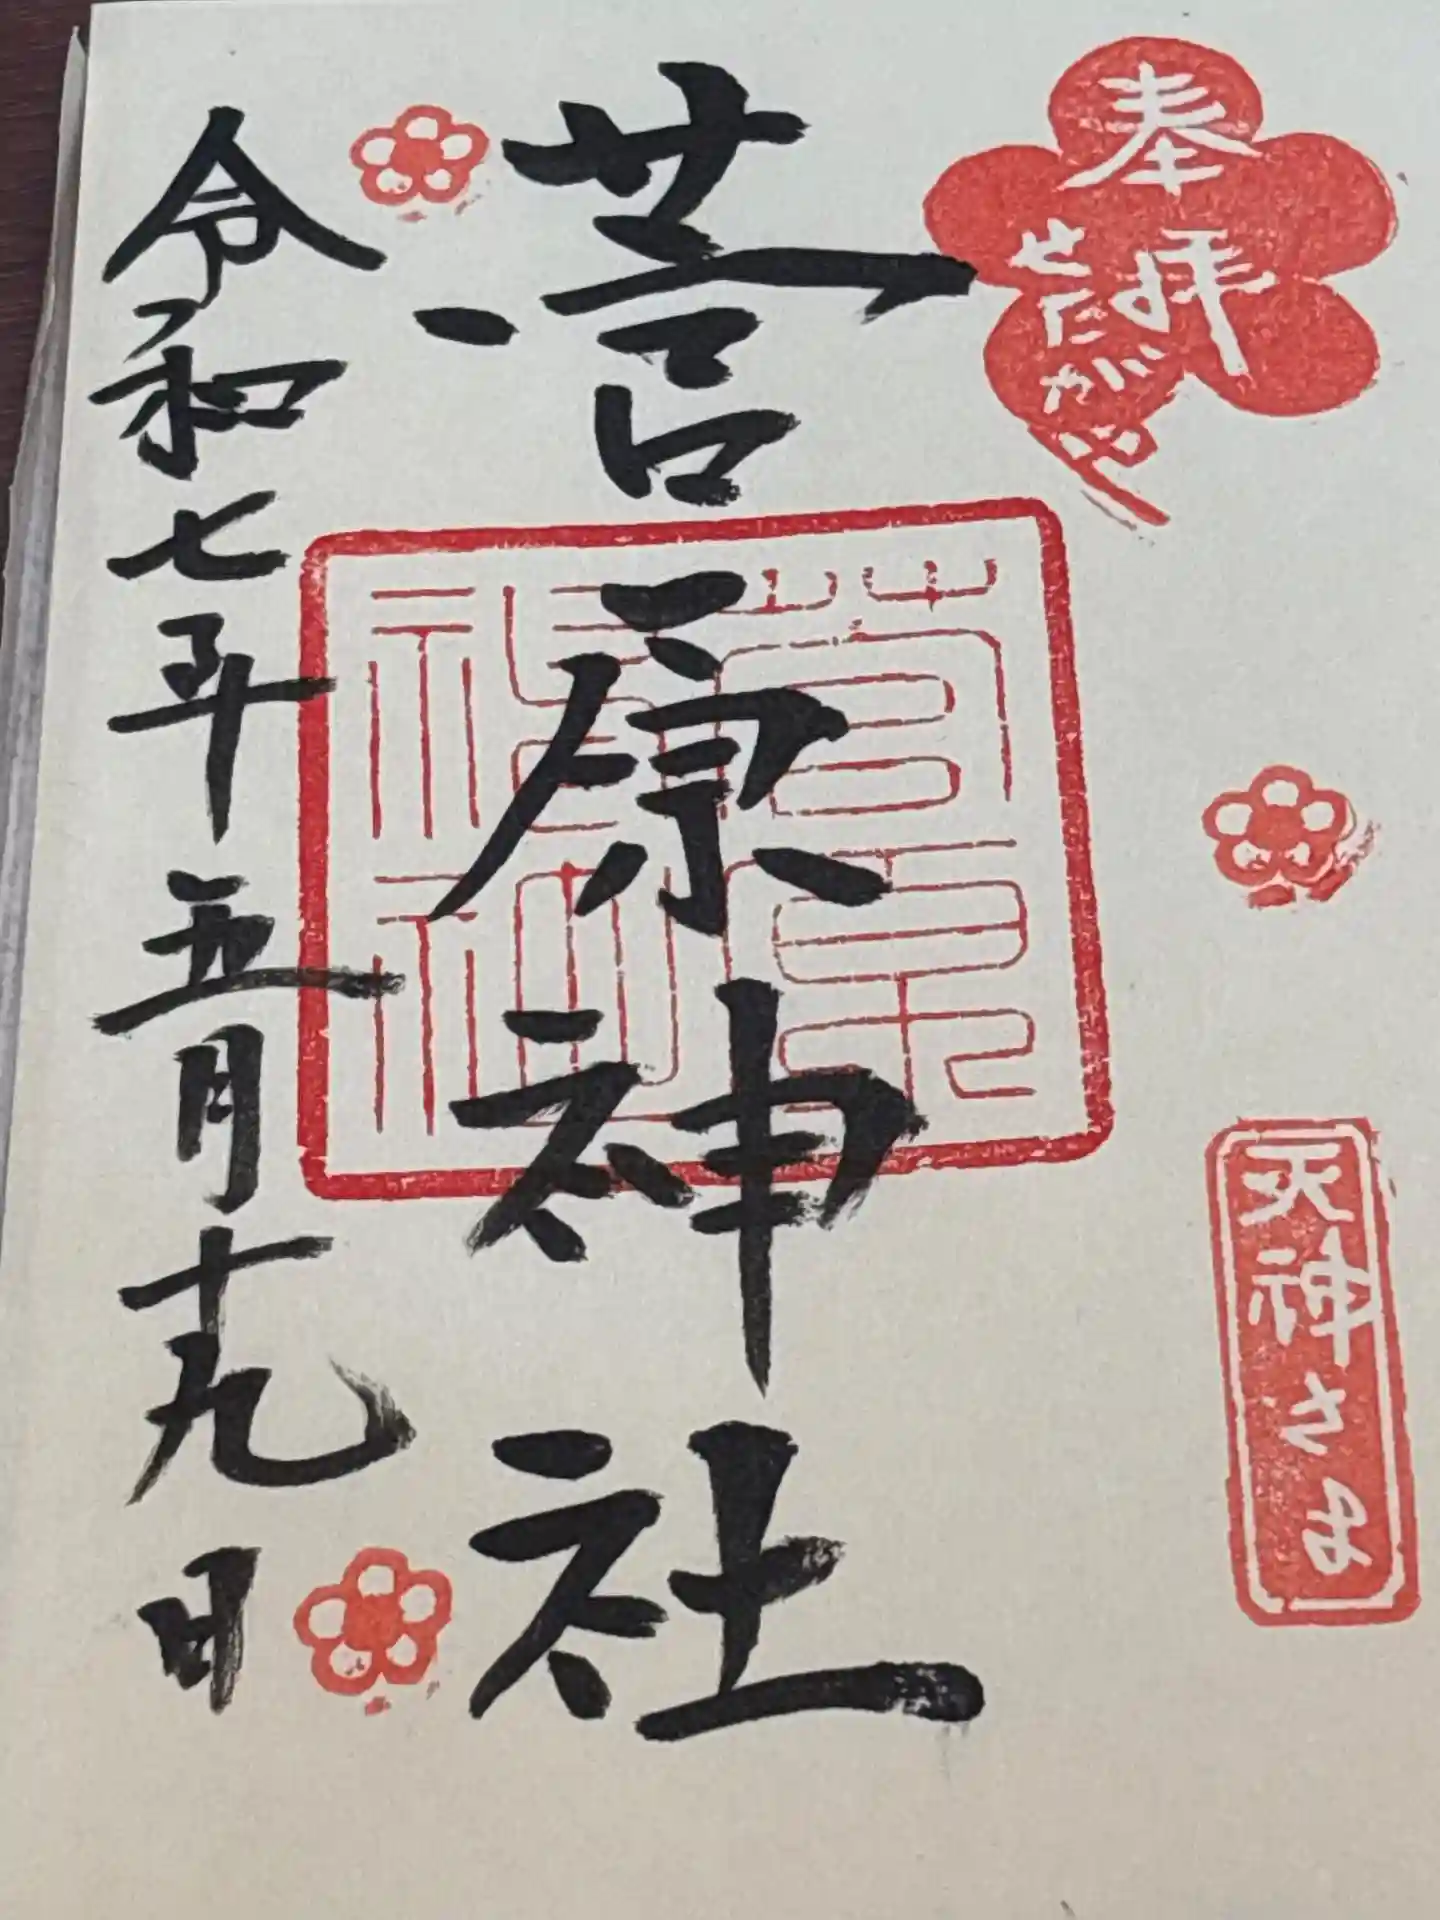 奉拝
せたがや
天神さま
菅原神社
菅原神社
令和七年五月十九日